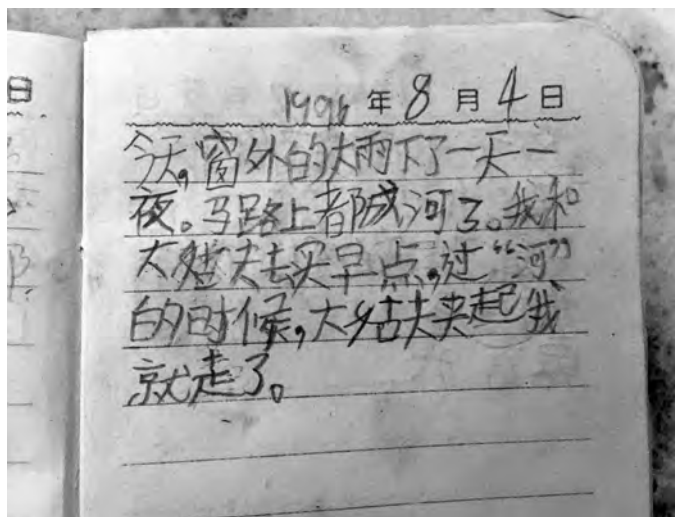 日
1996年8月4日
今天,窗外的大雨下了一天一
夜。马路上都成河了。我和
大姑夫去买早点,过“河”
的时候,大姑夫夹起我
就走了。